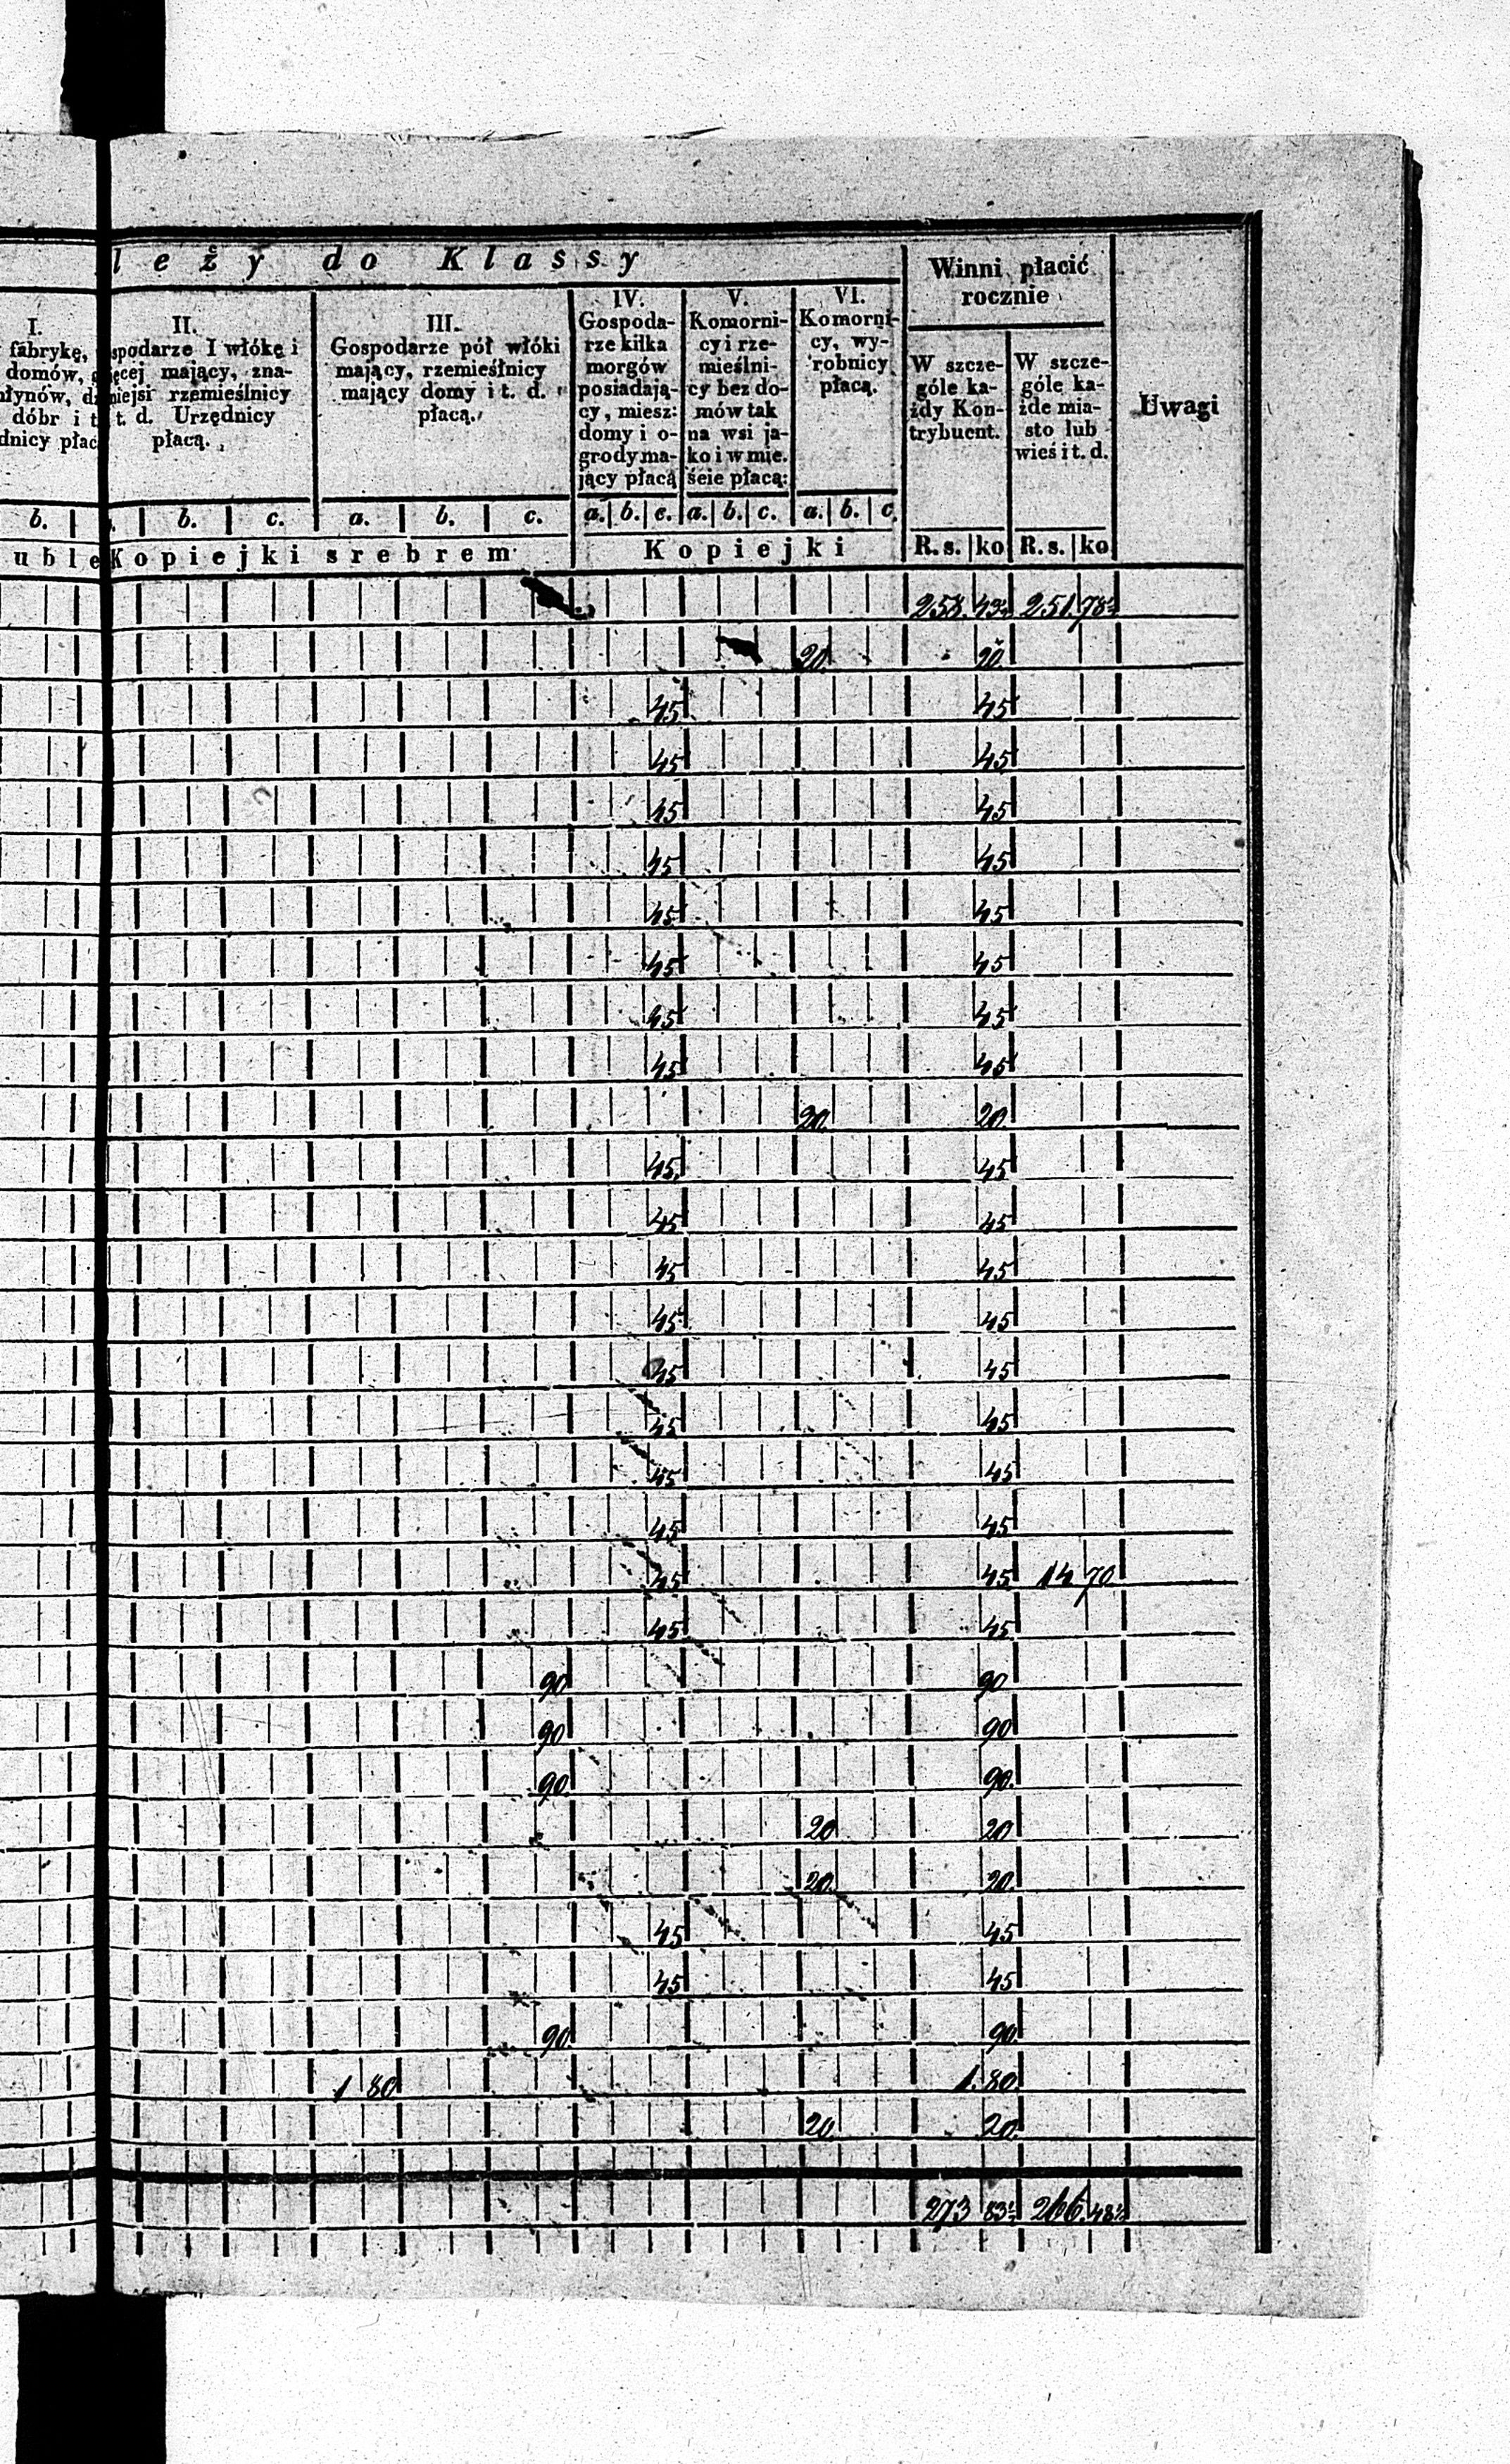 leży do Klassy
Winni płacić
rocznie
Uwagi
I.
fabrykę,
domów,
dóbr i
II.
spodarze I włókę i
ęcej mający, zna-
miejsi rzemieślnicy
t. d. Urzędnicy
płacą.
III.
Gospodarze pół włóki
mający, rzemieślnicy
mający domy i t. d.
płacą.
IV.
Gospoda-
rze kilka
morgów
posiadają-
cy, miesz:
domy i o-
grody ma-
jący płacą
V.
Komorni-
cy i rze-
mieślni-
cy bez do-
mów tak
na wsi ja-
ko i w mie.
ście płacą:
VI.
Komorni-
cy, wy-
robnicy
płacą.
W szcze-
góle ka-
żdy Kon-
trybuent.
W szcze-
góle ka-
żde mia-
sto lub
wieś i t. d.
b. b. c. a. b. c. a. b. c. a. b. c. a. b. c.
uble Kopiejki srebrem Kopiejki R. s. ko R. s. ko
251. 78½
20 20
45 45
45 45
45 45
45 45
45 45
45 45
45 45
45 45
20 20
45 45
45 45
45 45
45 45
45 45
45 45
45 45
45 45
45 45 14 70
45 45
90 90
90 90
90 90
20 20
20 20
45 45
45 45
90 90
1 80 1. 80
20 20
273 83½ 266. 48½